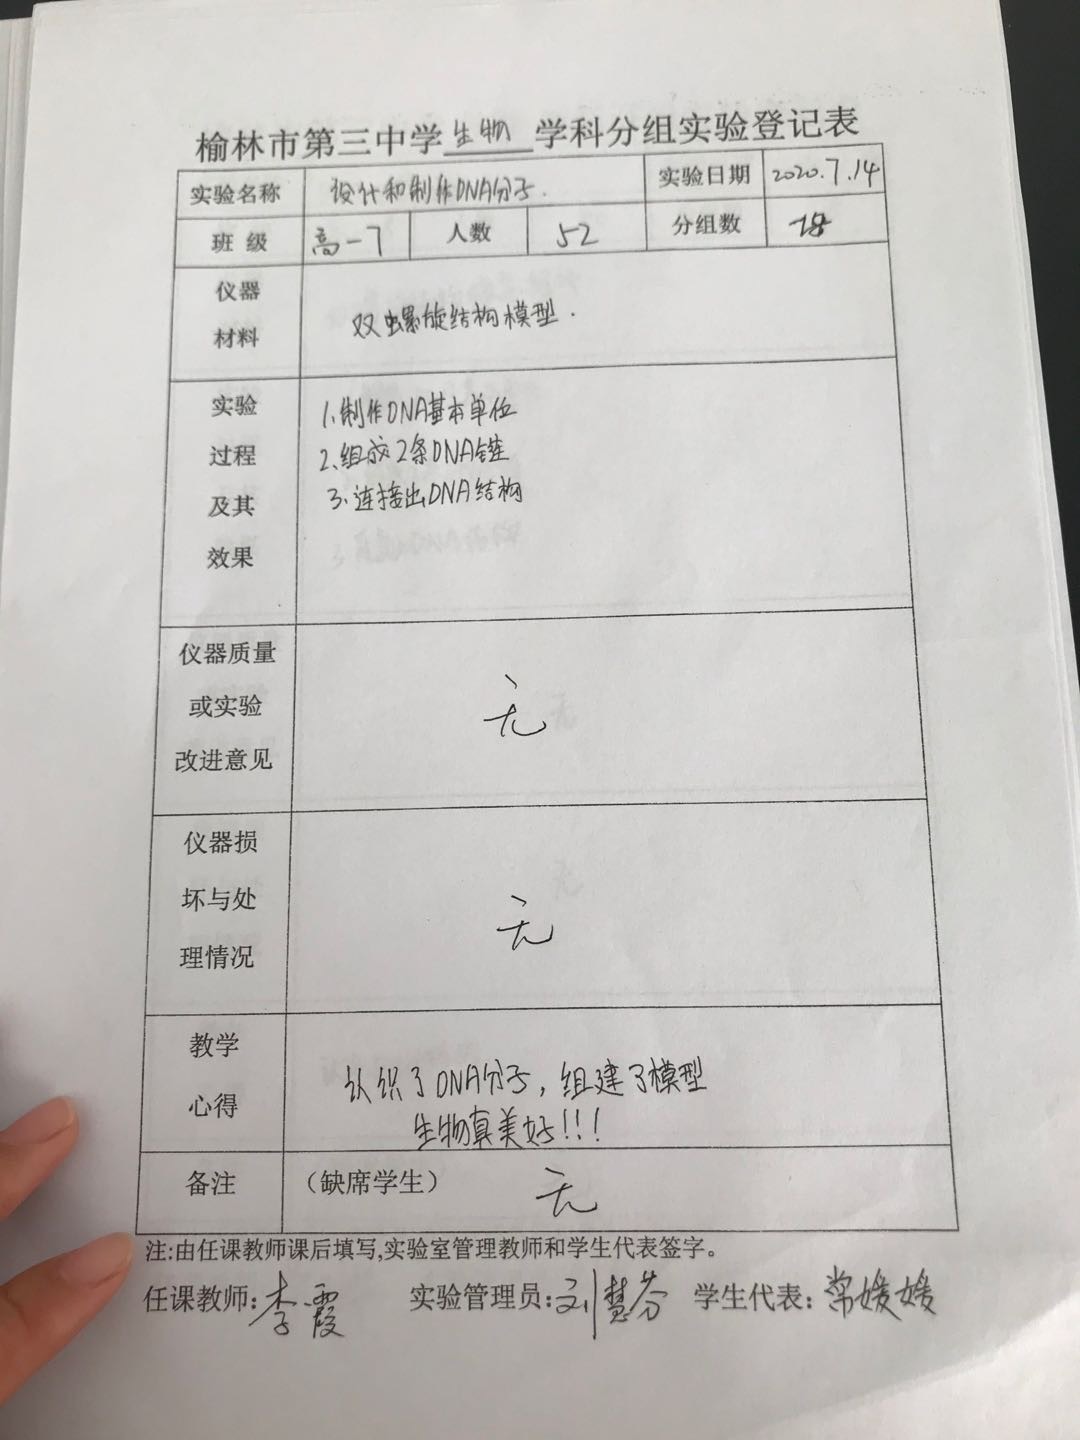 榆林市第三中学生物学科分组实验登记表
实验名称 设计和制作DNA分子. 实验日期 2020.7.14
班 级 高一7 人数 52 分组数 18
仪器
材料
双螺旋结构模型.
实验
过程
及其
效果
1.制作DNA基本单位
2.组成2条DNA链
3.连接出DNA结构
仪器质量
或实验
改进意见
无
仪器损
坏与处
理情况
无
教学
心得
认识了DNA分子,组建了模型
生物真美好!!!
备注 (缺席学生) 无
注:由任课教师课后填写,实验室管理教师和学生代表签字。
任课教师:李霞 实验管理员:刘慧芬 学生代表:常媛媛